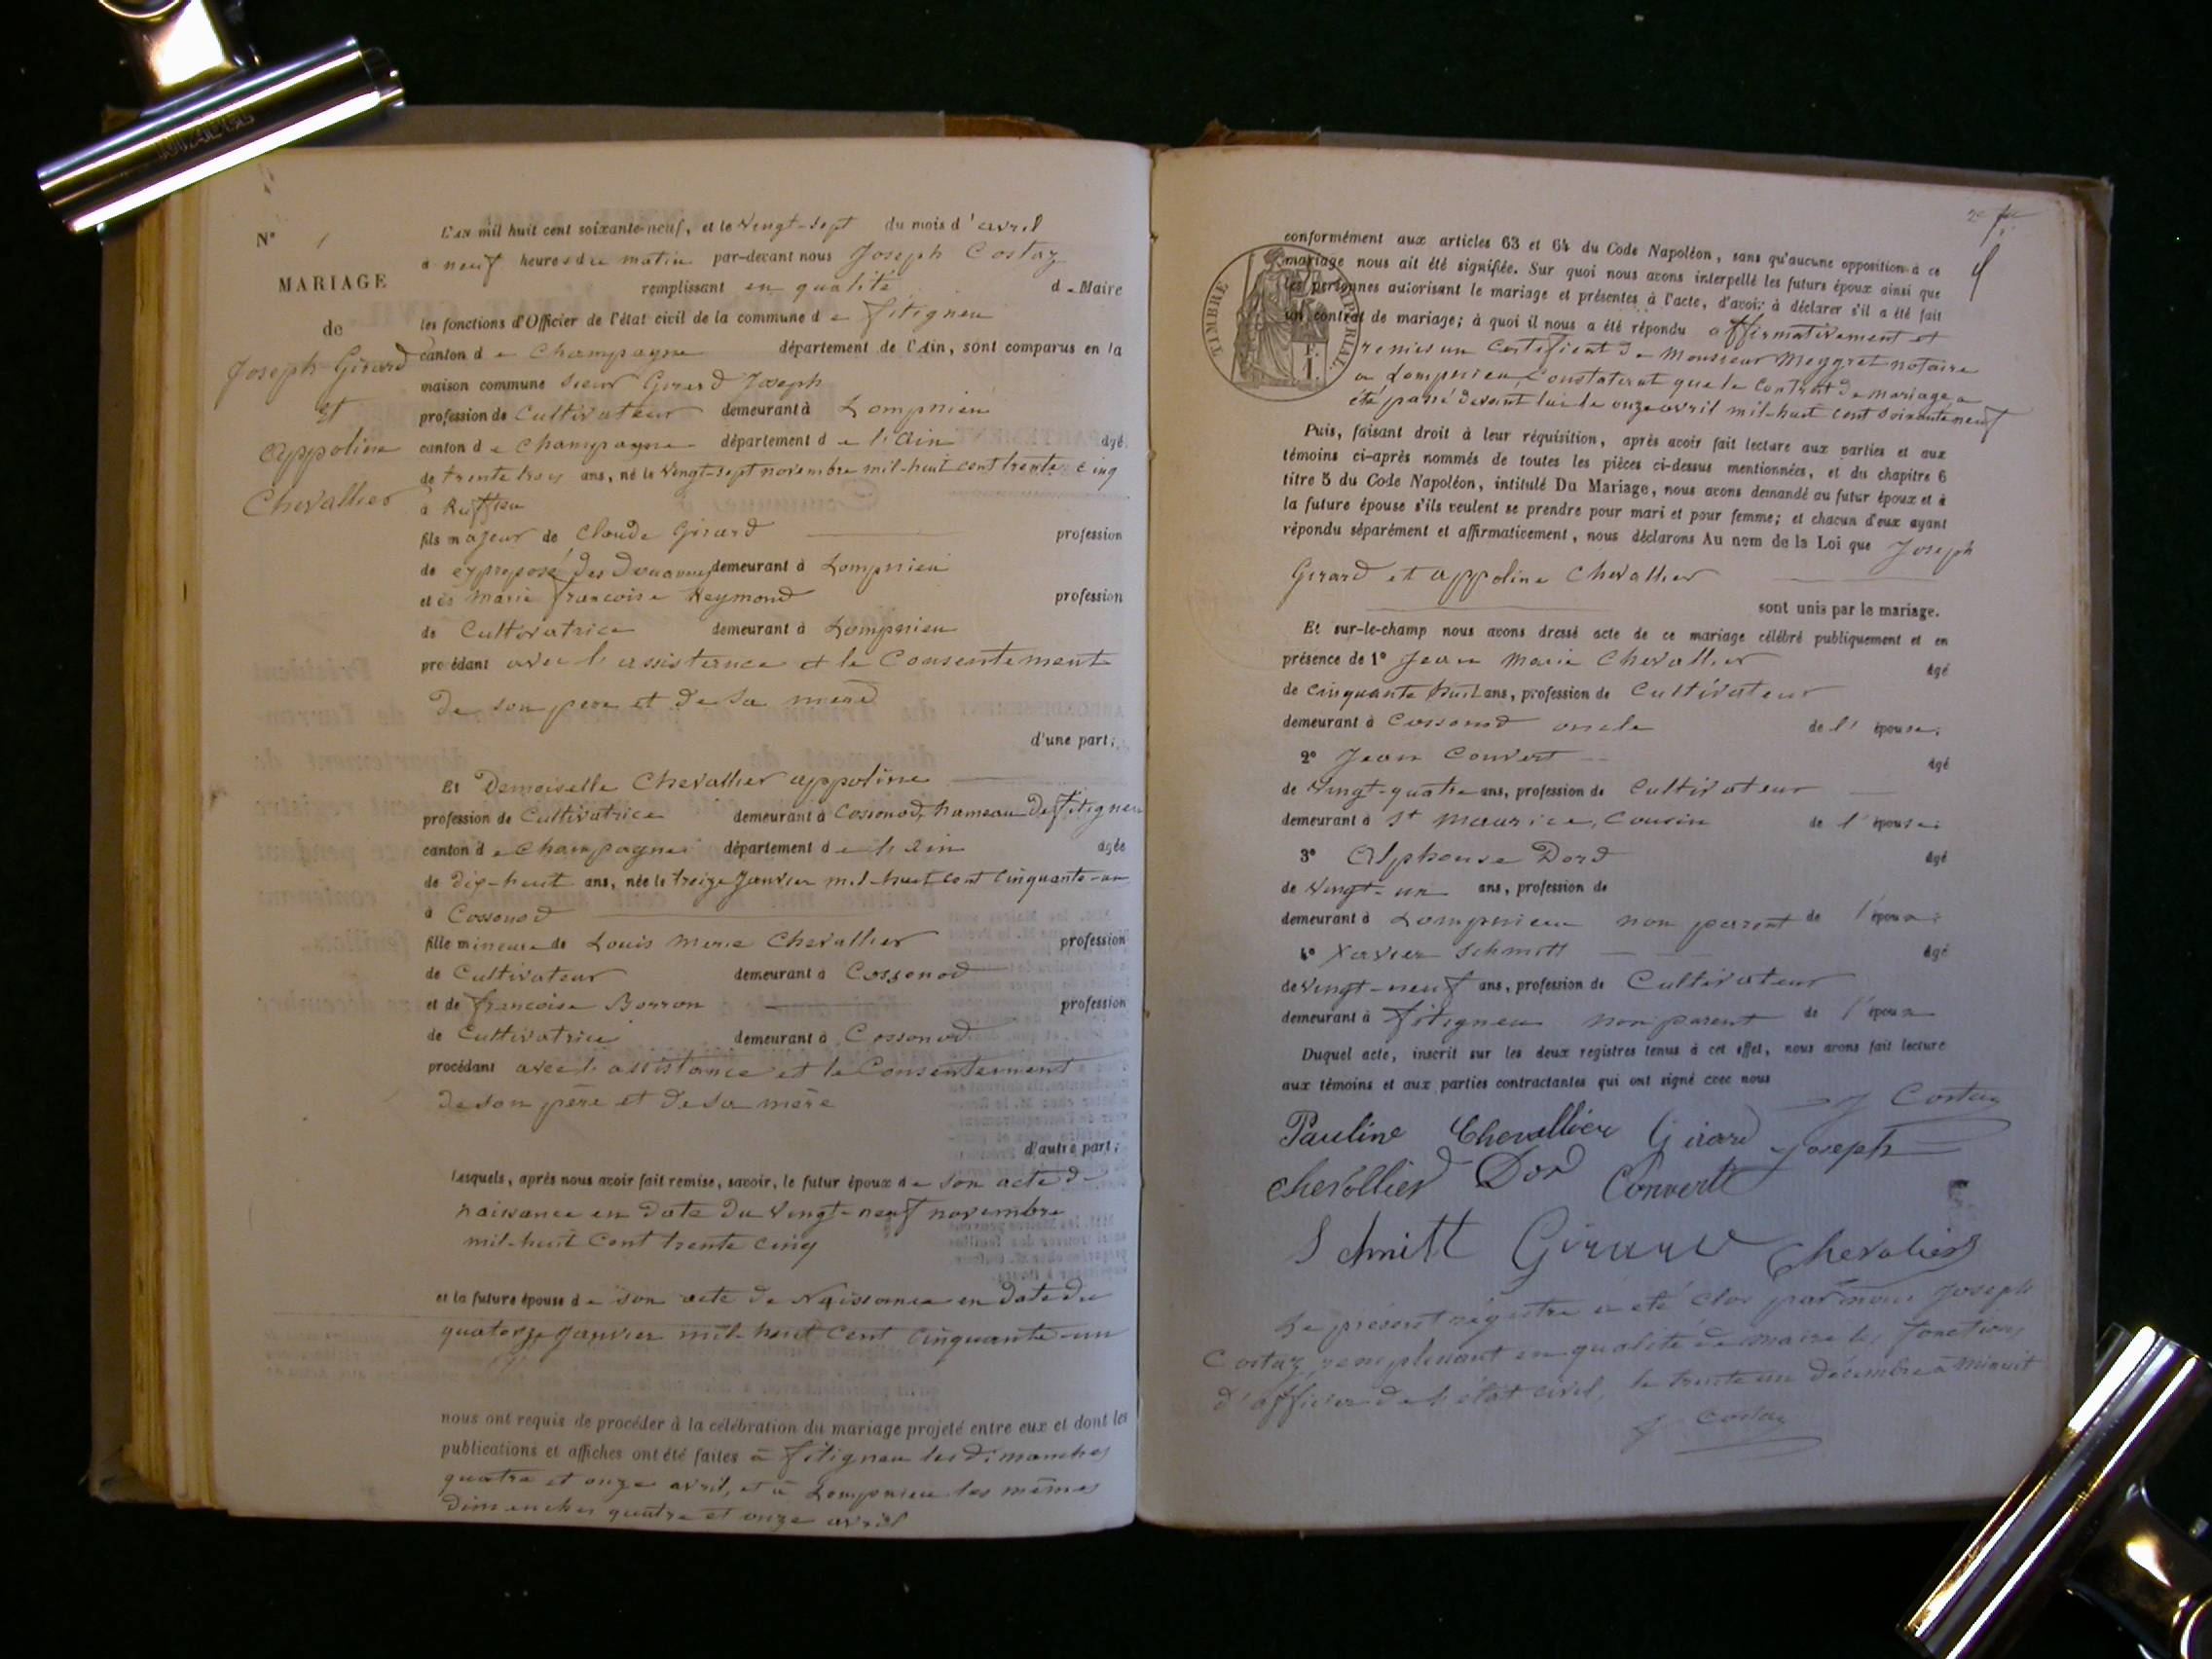 N° 1
MARIAGE
de
Joseph Girard
et
Appoline
Chevallier
L'an mil huit cent soixante-neuf, et le vingt-sept du mois d'avril
à neuf heures du matin par-devant nous Joseph Costaz
remplissant en qualité de Maire
les fonctions d'Officier de l'état civil de la commune de fitignieu
canton de Champagne département de l'Ain, sont comparus en la
maison commune sieur Girard Joseph
profession de Cultivateur demeurant à Lompnieu
canton de Champagne département de l'Ain âgé
de trente trois ans, né le vingt-sept novembre mil-huit cent trente cinq
à Ruffieu
fils majeur de Claude Girard profession
de exproposé des Douannes demeurant à Lompnieu
et de Marie françoise Reymond profession
de Cultivatrice demeurant à Lompnieu
procédant avec l'assistance et le Consentement
de son père et de sa mère
d'une part;
Et Demoiselle Chevallier appoline
profession de Cultivatrice demeurant à Cossonod, hameau de fitignieu
canton de Champagne département de l'Ain âgée
de dix-huit ans, née le treize Janvier mil-huit cent Cinquante-un
à Cossonod
fille mineure de Louis Marie Chevallier profession
de Cultivateur demeurant à Cossonod
et de françoise Borron profession
de Cultivatrice demeurant à Cossonod
procédant avec l'assistance et le Consentement
de son père et de sa mère
d'autre part;
Lesquels, après nous avoir fait remise, savoir, le futur époux de son acte de
naissance en date du vingt-neuf novembre
mil-huit Cent trente cinq
et la future épouse de son acte de Naissance en date du
quatorze Janvier mil-huit Cent Cinquante-un
nous ont requis de procéder à la célébration du mariage projeté entre eux et dont les
publications et affiches ont été faites à fitignieu les dimanches
quatre et onze avril, et à Lompnieu les mêmes
dimanches quatre et onze avril
TIMBRE IMPÉRIAL
1 F.
conformément aux articles 63 et 64 du Code Napoléon, sans qu'aucune opposition à ce
mariage nous ait été signifiée. Sur quoi nous avons interpellé les futurs époux ainsi que
les personnes autorisant le mariage et présentes à l'acte, d'avoir à déclarer s'il a été fait
un contrat de mariage; à quoi il nous a été répondu affirmativement et
remis un Certificat de Monsieur Meygret notaire
à Lompnieu, Constatant que le Contrat de mariage a
été passé devant lui le onze avril mil-huit cent soixante neuf
Puis, faisant droit à leur réquisition, après avoir fait lecture aux parties et aux
témoins ci-après nommés de toutes les pièces ci-dessus mentionnées, et du chapitre 6
titre 5 du Code Napoléon, intitulé Du Mariage, nous avons demandé au futur époux et à
la future épouse s'ils veulent se prendre pour mari et pour femme; et chacun d'eux ayant
répondu séparément et affirmativement, nous déclarons Au nom de la Loi que Joseph
Girard et appoline Chevallier
sont unis par le mariage.
Et sur-le-champ nous avons dressé acte de ce mariage célébré publiquement et en
présence de 1° Jean Marie Chevallier âgé
de Cinquante huit ans, profession de Cultivateur
demeurant à Cossonod oncle de l'épouse;
2° Jean Convert âgé
de Vingt-quatre ans, profession de Cultivateur
demeurant à St Maurice, Cousin de l'épouse;
3° Alphonse Dord âgé
de Vingt-un ans, profession de
demeurant à Lompnieu non parent de l'époux;
4° Xavier Schmitt âgé
de vingt-neuf ans, profession de Cultivateur
demeurant à fitignieu non parent de l'époux
Duquel acte, inscrit sur les deux registres tenus à cet effet, nous avons fait lecture
aux témoins et aux parties contractantes qui ont signé avec nous
J Costaz
Pauline Chevallier Girard Joseph
Chevallier Dord Convert
Schmitt Girard Chevalier
Le présent régistre a été Clos par nous Joseph
Costaz, remplissant en qualité de maire les fonctions
d'officier de l'état civil, le trente un décembre à minuit
J. Costaz